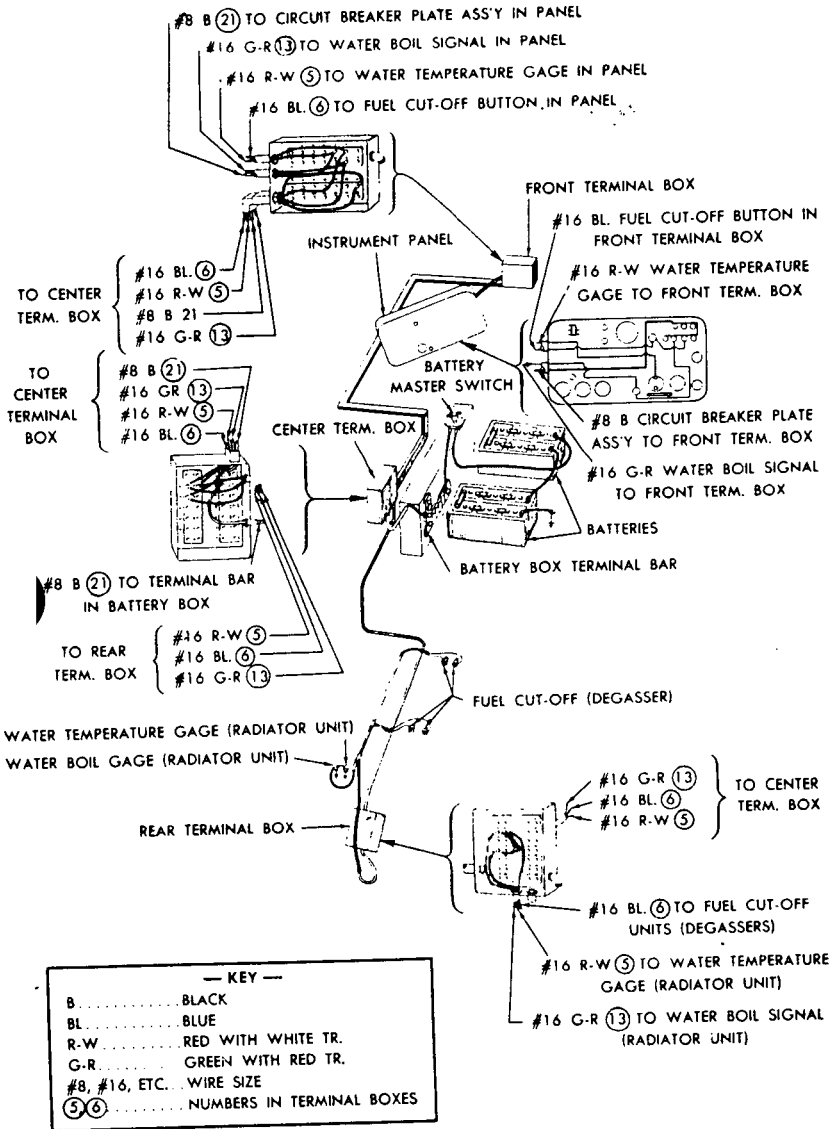 #8 B (21) TO CIRCUIT BREAKER PLATE ASS'Y IN PANEL
#16 G-R (13) TO WATER BOIL SIGNAL IN PANEL
#16 R-W (5) TO WATER TEMPERATURE GAGE IN PANEL
#16 BL. (6) TO FUEL CUT-OFF BUTTON IN PANEL
FRONT TERMINAL BOX
#16 BL. FUEL CUT-OFF BUTTON IN
FRONT TERMINAL BOX
INSTRUMENT PANEL
#16 R-W WATER TEMPERATURE
GAGE TO FRONT TERM. BOX
TO CENTER
TERM. BOX
#16 BL. (6)
#16 R-W (5)
#8 B 21
#16 G-R (13)
TO
CENTER
TERMINAL
BOX
#8 B (21)
#16 GR (13)
#16 R-W (5)
#16 BL. (6)
BATTERY
MASTER SWITCH
CENTER TERM. BOX
#8 B CIRCUIT BREAKER PLATE
ASS'Y TO FRONT TERM. BOX
#16 G-R WATER BOIL SIGNAL
TO FRONT TERM. BOX
BATTERIES
BATTERY BOX TERMINAL BAR
#8 B (21) TO TERMINAL BAR
IN BATTERY BOX
TO REAR
TERM. BOX
#16 R-W (5)
#16 BL. (6)
#16 G-R (13)
FUEL CUT-OFF (DEGASSER)
WATER TEMPERATURE GAGE (RADIATOR UNIT)
WATER BOIL GAGE (RADIATOR UNIT)
REAR TERMINAL BOX
#16 G-R (13)
#16 BL. (6)
#16 R-W (5)
TO CENTER
TERM. BOX
#16 BL. (6) TO FUEL CUT-OFF
UNITS (DEGASSERS)
#16 R-W (5) TO WATER TEMPERATURE
GAGE (RADIATOR UNIT)
#16 G-R (13) TO WATER BOIL SIGNAL
(RADIATOR UNIT)
— KEY —
B............BLACK
BL...........BLUE
R-W.........RED WITH WHITE TR.
G-R........GREEN WITH RED TR.
#8, #16, ETC...WIRE SIZE
(5),(6)..........NUMBERS IN TERMINAL BOXES